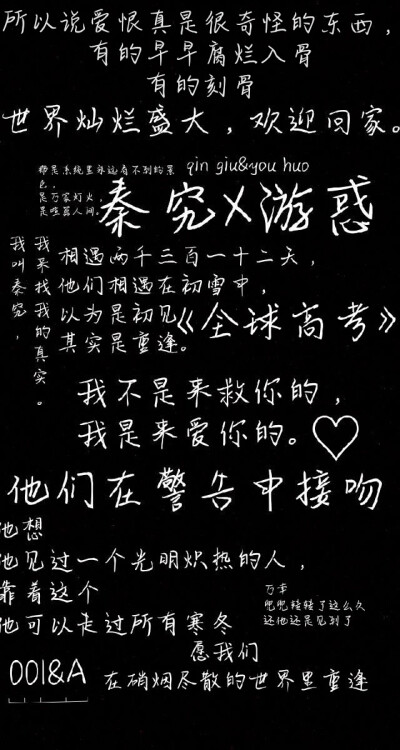 所以说爱恨真是很奇怪的东西，
有的早早腐烂入骨
有的刻骨
世界灿烂盛大，欢迎回家。
那是系统里永远看不到的景
色，
是万家灯火，
是喧嚣人间。
qin giu&you huo
秦究X游惑
我叫秦究，
我来找我的真实。
相遇两千三百一十二天，
他们相遇在初雪中，
以为是初见
其实是重逢。
《全球高考》
我不是来救你的，
我是来爱你的。
他们在警告中接吻
他想
他见过一个光明炽热的人，
靠着这个
他可以走过所有寒冬
万幸
兜兜转转了这么久
还他还是见到了
愿我们
001&A
在硝烟尽散的世界里重逢